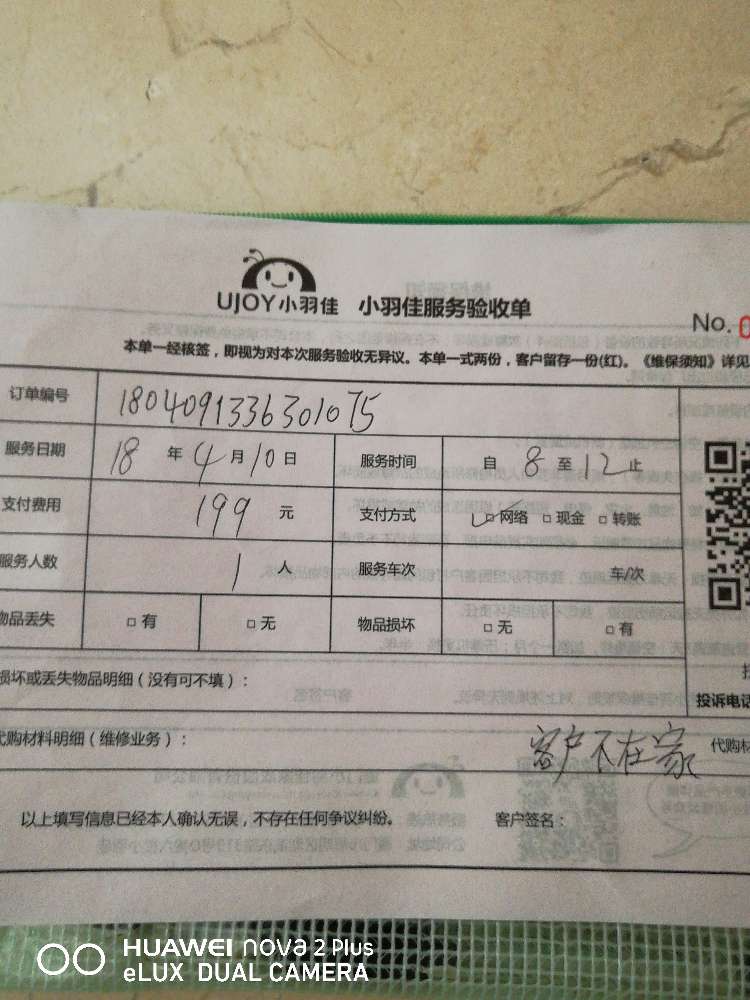 UJOY小羽佳 小羽佳服务验收单
No.0
本单一经核签，即视为对本次服务验收无异议。本单一式两份，客户留存一份(红)。《维保须知》详见
订单编号 1804091336301075
服务日期 18 年 4 月 10 日 服务时间 自 8 至 12 止
支付费用 199 元 支付方式 ☑网络 □现金 □转账
服务人数 1 人 服务车次 车/次
物品丢失 □有 □无 物品损坏 □无 □有
损坏或丢失物品明细（没有可不填）：
投诉电话
代购材料明细（维修业务）： 客户不在家 代购材
以上填写信息已经本人确认无误，不存在任何争议纠纷。 客户签名：
HUAWEI nova 2 Plus
eLUX DUAL CAMERA